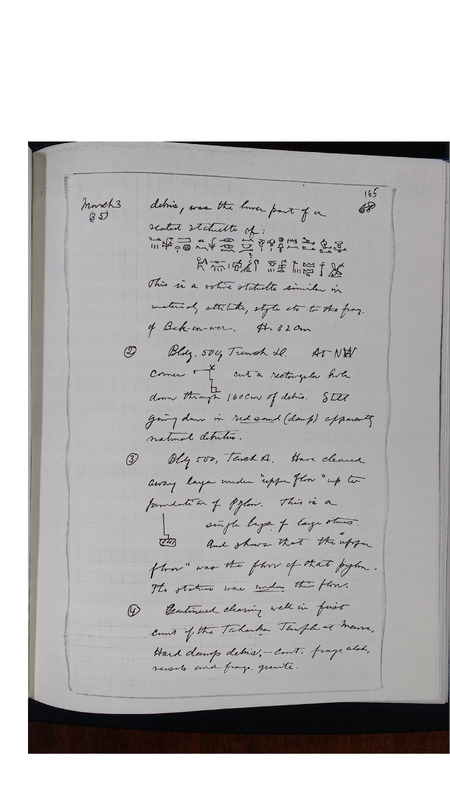 165
68
March 3
(35)
debris, was the lower part of a
seated statuette of:
This is a votive statuette similar in
material, attitude, style etc to the frag.
of Bek-en-wer. H. 32 cm
② Bldg. 500, Trench D. At NW
corner cut a rectangular hole
down through 160 cm of debris. Still
going down in red sand (damp) apparently
natural detritus.
③ Bldg 500, Trench A. Have cleared
away layer under "upper floor" up to
foundation of Pylon. This is a
single layer of large stones.
And shows that the "upper
floor" was the floor of that pylon.
The statues were under the floor.
④ Continued clearing well in first
court of the Taharka Temple at
Hard damp debris, – cont. frags. alab.
vessels and frags. granite.